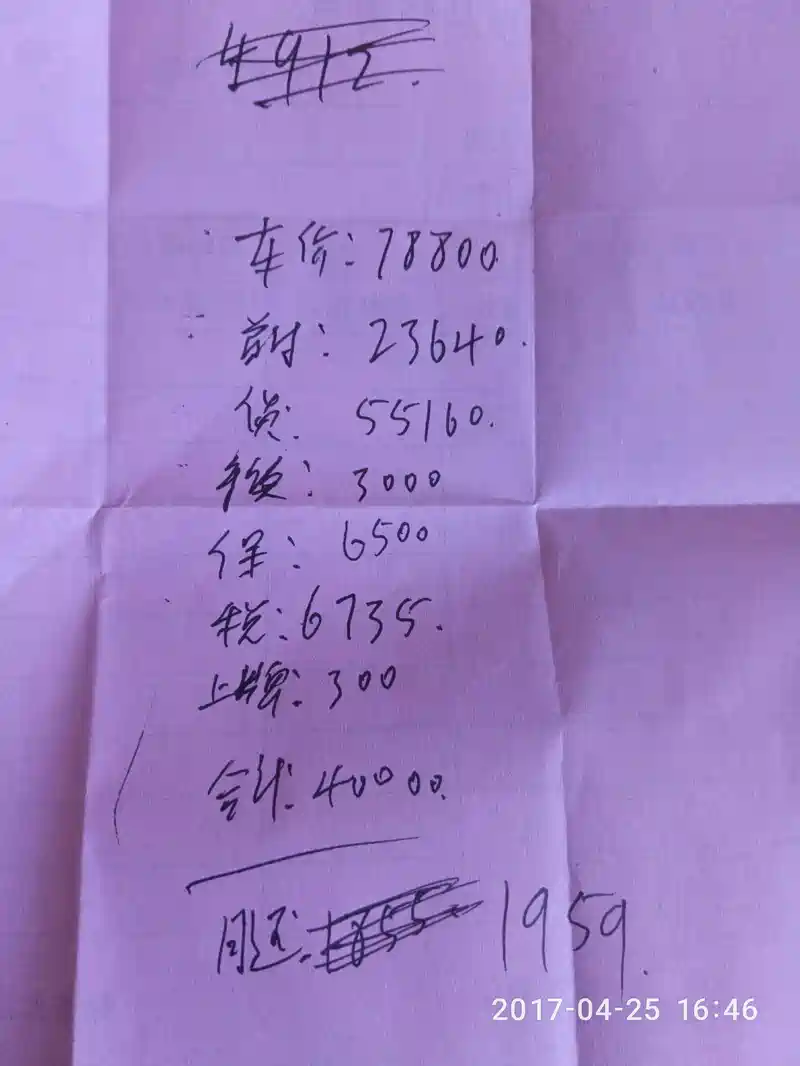 车价：78800.
首付：23640.
贷：55160.
手续：3000
保：6500
税：6735.
上牌：300
合计：40000.
月还：1959.
2017-04-25 16:46